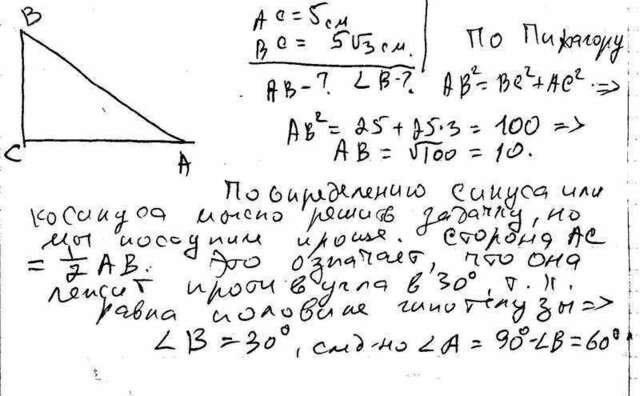 B
C
A
AC = 5 см
BC = 5√3 см.
AB - ? ∠B - ?
По Пифагору
AB² = BC² + AC² =>
AB² = 25 + 25·3 = 100 =>
AB = √100 = 10.
По определению синуса или
косинуса можно решить задачку, но
мы поступим проще. Сторона AC
= 1/2 AB. Это означает, что она
лежит против угла в 30°, т. к.
равна половине гипотенузы =>
∠B = 30°, след-но ∠A = 90° - ∠B = 60°